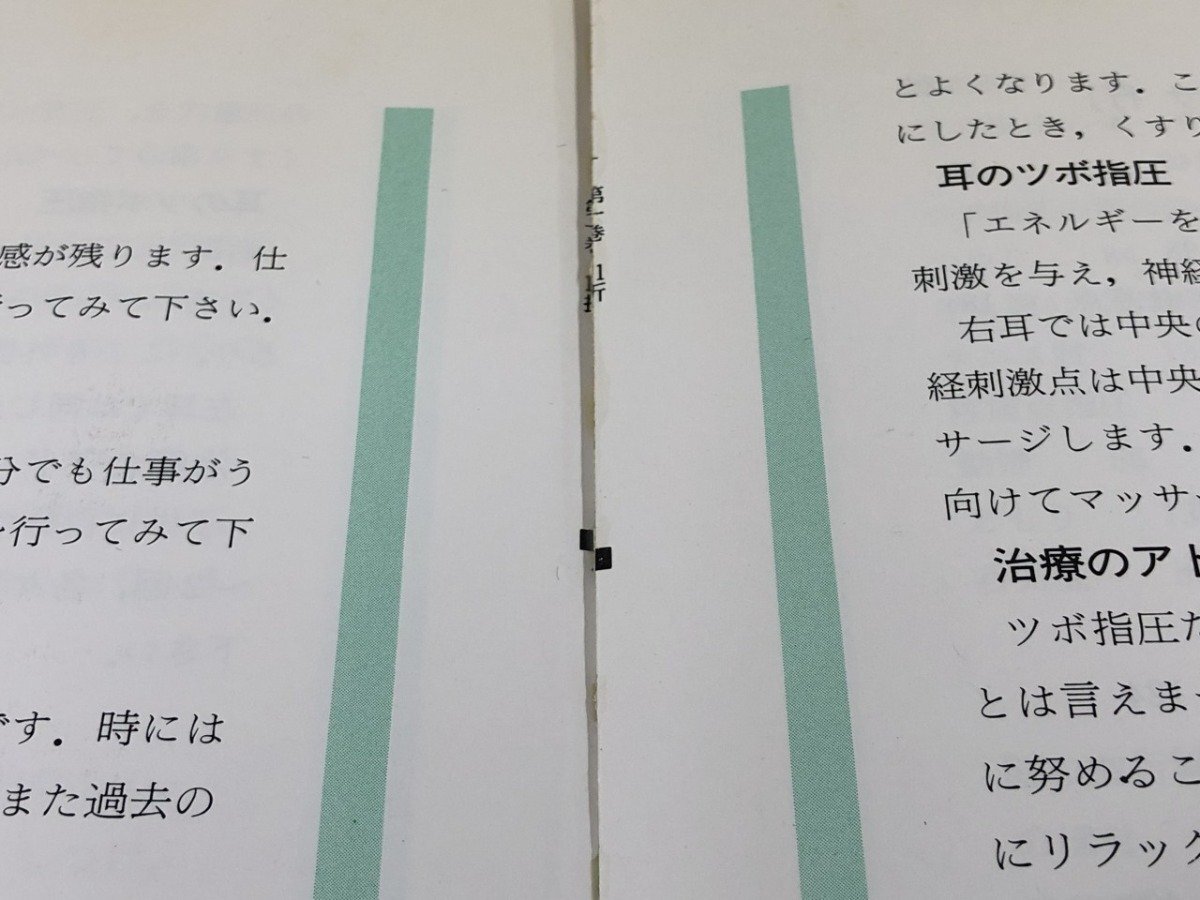 感が残ります．仕
ってみて下さい．
分でも仕事がう
行ってみて下
です．時には
また過去の
とよくなります．こ
にしたとき，くすり
耳のツボ指圧
「エネルギーを
刺激を与え，神経
右耳では中央の
経刺激点は中央
サージします．
向けてマッサ
治療のアト
ツボ指圧だ
とは言えま
に努めるこ
にリラック